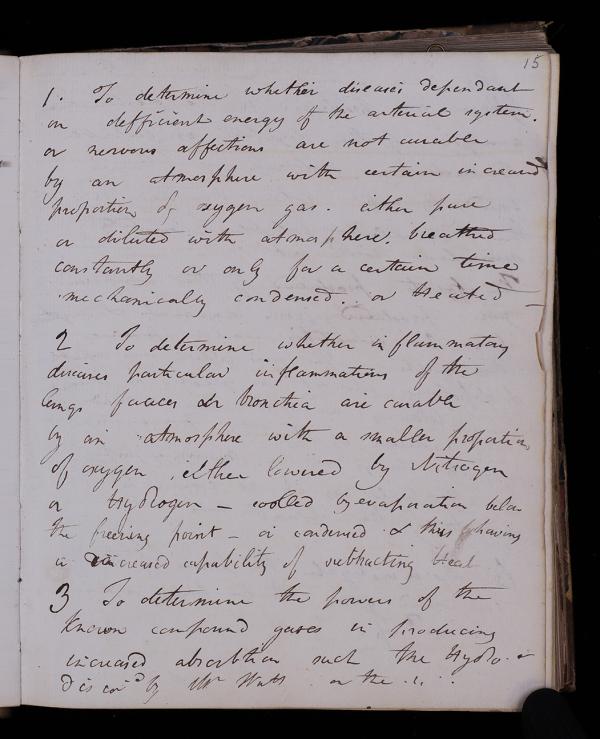 15
1. To determine whether diseases dependant
on defficient energy of the arterial system.
or nervous affections are not curable
by an atmosphere with certain increased
proportion of oxygen gas. either pure
or diluted with atmosphere. breathed
constantly or only for a certain time
mechanically condensed. or Heated –
2 To determine whether inflammatory
diseases particular inflammations of the
lungs fauces & bronchia are curable
by an atmosphere with a smaller proportion
of oxygen, either lowered by Nitrogen
or Hydrogen – cooled by evaporation below
the freezing point – or condensed & thus having
a increased capability of subtracting Heat
3 To determine the powers of the
Known compound gases in producing
increased absorbtion such the Hydro.
by Mr Watt on the